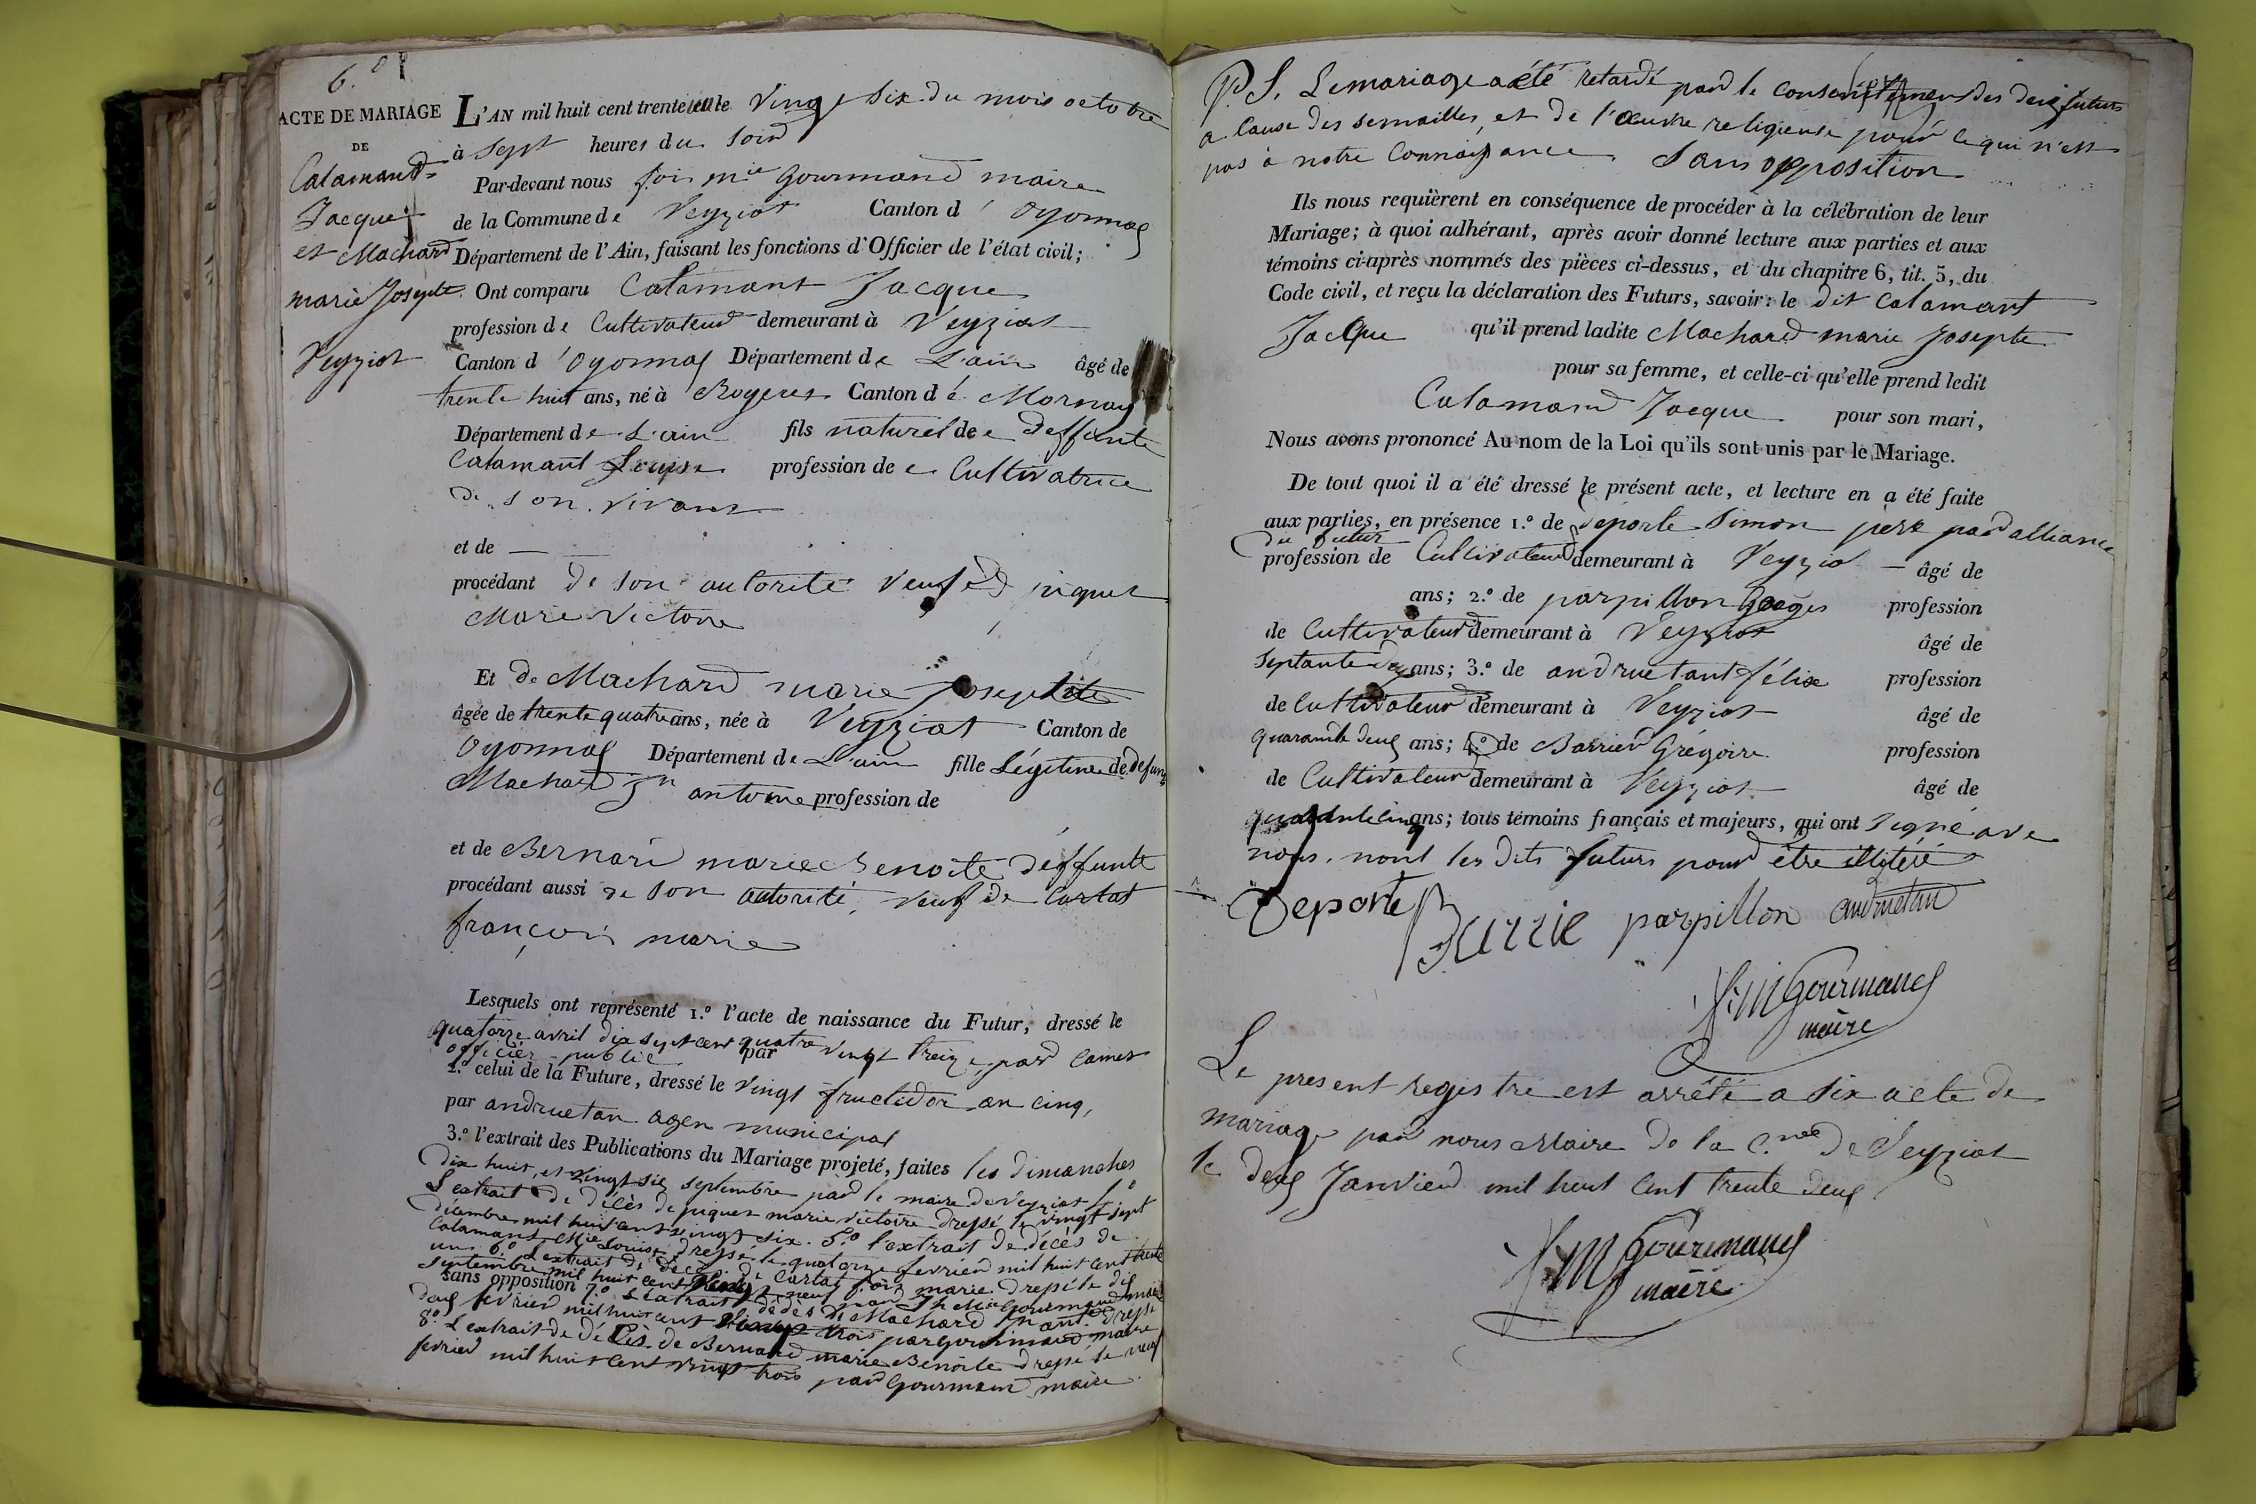 6.e
ACTE DE MARIAGE
DE
Calamand
Jacque
et Machard
marie Josepte
Veyziat
L'AN mil huit cent trente et un le vingt six du mois octobre
à sept heures du soir
Par-devant nous fois mie Gourmand maire
de la Commune de Veyziat Canton d' Oyonnas
Département de l'Ain, faisant les fonctions d'Officier de l'état civil;
Ont comparu Calamant Jacque
profession de Cultivateur demeurant à Veyziat
Canton d'Oyonnas Département de L'ain âgé de
trente huit ans, né à Rogeres Canton de Mornay
Département de L'ain fils naturel de deffunte
Calamant Louise profession de Cultivatrice
de son vivant
et de
procédant de son autorité veuf de piquet
Marie Victoire
Et de Machard marie Josephte
âgée de trente quatre ans, née à Veyziat Canton de
Oyonnas Département de L'ain fille Légitime de defunt
Machard Jn antoine profession de
et de Bernard marie Benoite déffunte
procédant aussi de son autorité, veuf de Cartat
françois marie
Lesquels ont représenté 1.º l'acte de naissance du Futur, dressé le
quatorze avril dix sept cent quatre vingt treize, par Comet
officier public par
2.º celui de la Future, dressé le vingt fructidor an cinq,
par andruetan agen municipal
3.º l'extrait des Publications du Mariage projeté, faites les dimanches
dix huit, et vingt six septembre par le maire de Veyziat 4º
L'extrait de décès de piquet marie victoire dressé le vingt sept
décembre mil huit cent vingt six. 5.º l'extrait de décès de
Calamant Mie Louise, dressé le quatorze fevrier mil huit cent trente
un 6.º L'extrait de décès de Cartat fois marie dressé le dix
septembre mil huit cent vingt neuf par Gourmand maire
sans opposition 7.º L'extrait de décès de Machard Jn ant.ne dressé
deux fevrier mil huit cent vingt trois par Gourmand maire
8.º L'extrait de décès de Bernard marie Benoite dressé le neuf
fevrier mil huit cent vingt trois par Gourmand maire
P.S. Le mariage a été retardé par le consentement des deux futurs
a cause des semailles, et de l'Œuvre religieuse pour ce qui n'est
pas à notre connaissance. Sans opposition
Ils nous requièrent en conséquence de procéder à la célébration de leur
Mariage; à quoi adhérant, après avoir donné lecture aux parties et aux
témoins ci-après nommés des pièces ci-dessus, et du chapitre 6, tit. 5, du
Code civil, et reçu la déclaration des Futurs, savoir: le dit Calamant
Jacque qu'il prend ladite Machard marie Josepte
pour sa femme, et celle-ci qu'elle prend ledit
Calamand Jacque pour son mari,
Nous avons prononcé Au nom de la Loi qu'ils sont unis par le Mariage.
De tout quoi il a été dressé le présent acte, et lecture en a été faite
aux parties, en présence 1.º de Deporte Simon père par alliance
du futur
profession de Cultivateur demeurant à Veyziat âgé de
ans; 2.º de parpillon Georges profession
de Cultivateur demeurant à Veyziat âgé de
septante ans; 3.º de andruetant félix profession
de Cultivateur demeurant à Veyziat âgé de
quarante deux ans; 4.º de Barrier Grégoire profession
de Cultivateur demeurant à Veyziat âgé de
quarante cinq ans; tous témoins français et majeurs, qui ont signé avec
nous. nont les dits futurs pour être illitéré
Deporte Burrie parpillon andruetan
f. M Gourmand
maire
Le present registre est arrêté a six acte de
mariage par nous Maire de la Cnee de Veyziat
le deux Janvier mil huit cent trente deux
f. M Gourmand
maire